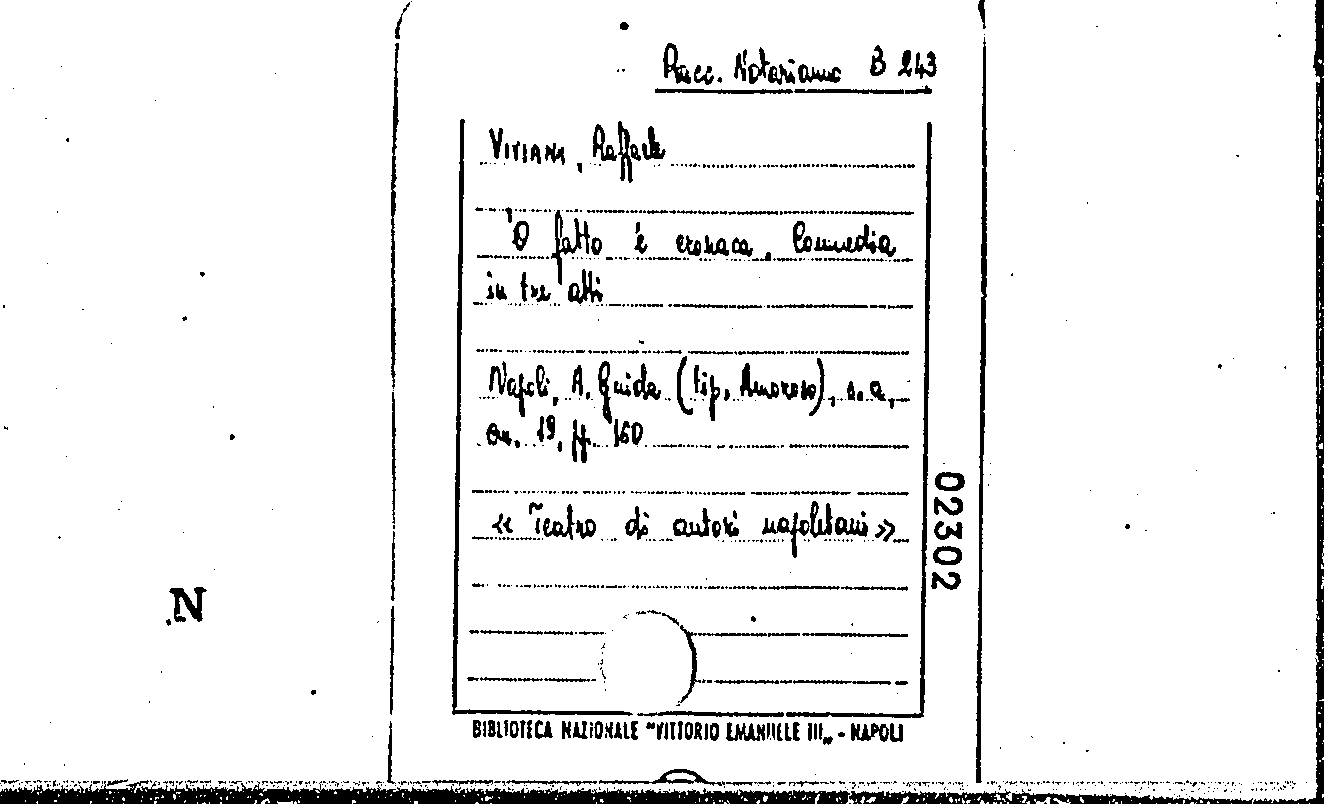 Racc. Notarianno B 243
VIVIANI, Raffaele
'O fatto 'e cronaca. Commedia
in tre atti
Napoli, A. Guida (tip. Amoroso), s.a.,
cm. 19, pp. 160
« Teatro di autori napoletani »
02302
N
BIBLIOTECA NAZIONALE "VITTORIO EMANUELE III„ - NAPOLI